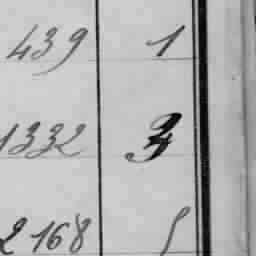 439 1
1332 3
2168